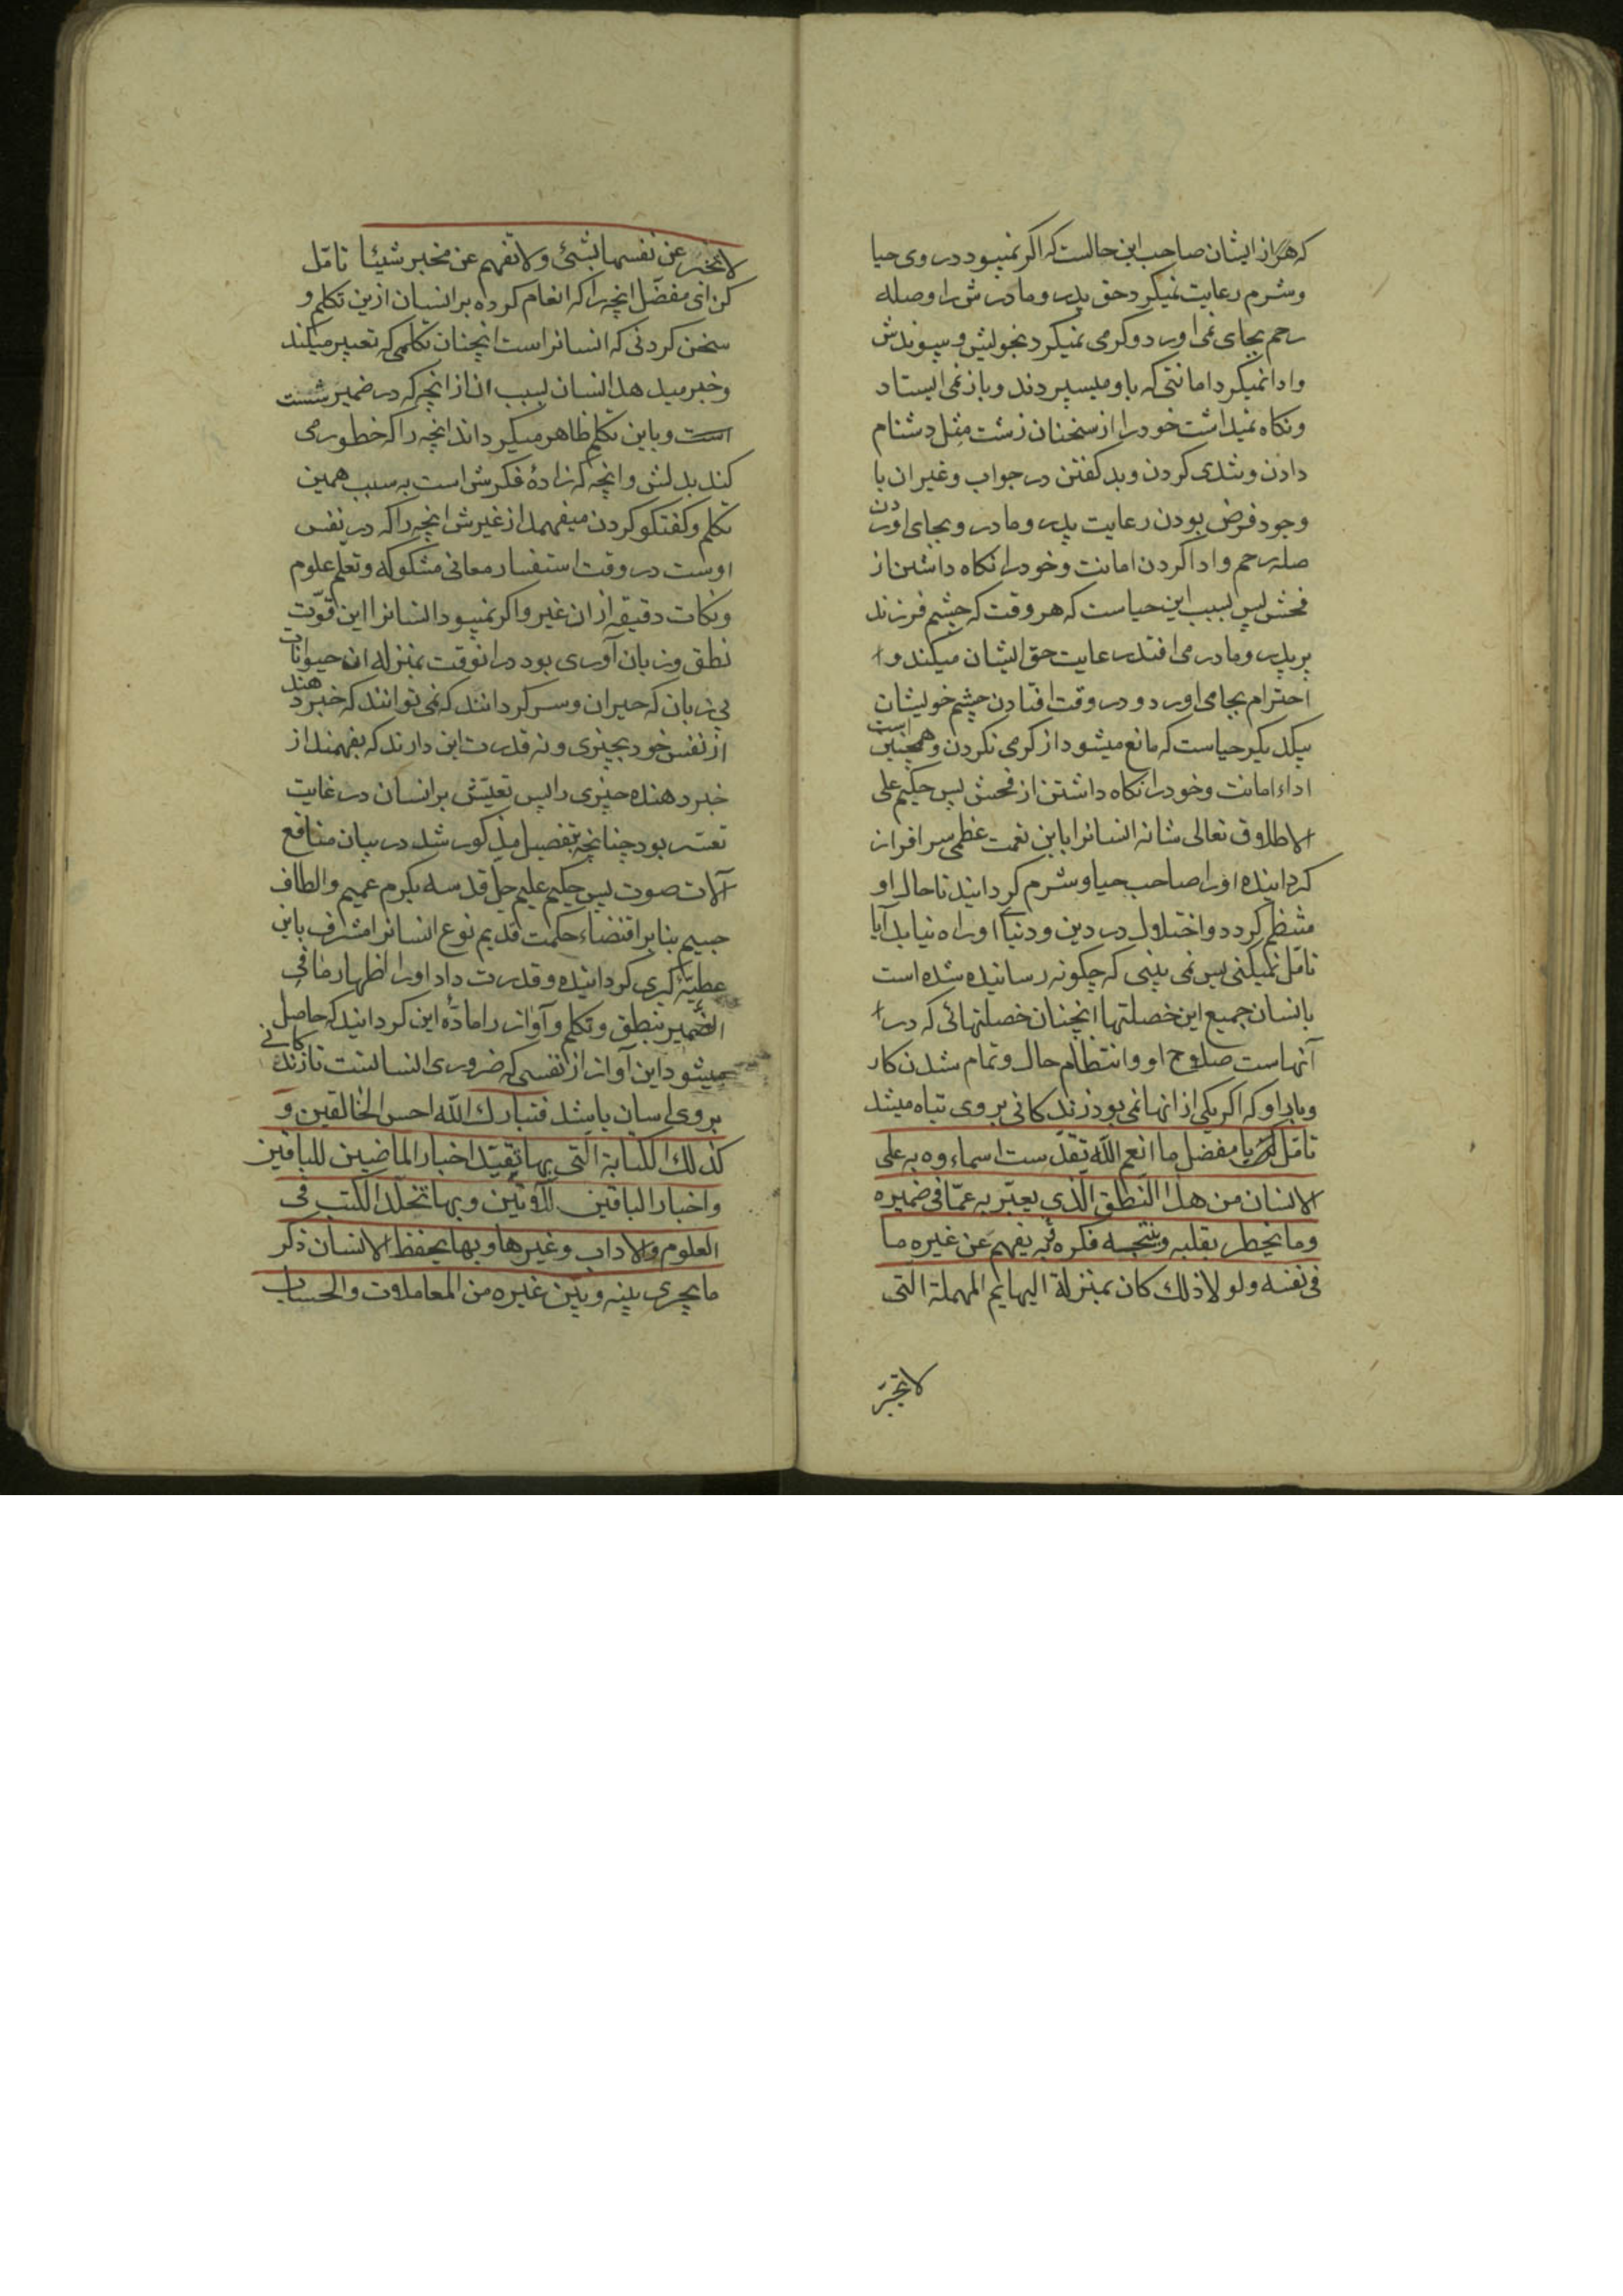 که هر از ایشان صاحب این حالست که اکر نمیبود در روی حیا
وشرم رعایت نمیکرد حق پدر ومادرش را وصله
رحم بجای نمی اورد وکرمی نمیکرد بخویش وپیوندش
وادا نمیکرد امانتی که باو میسپردند وباز نمی ایستاد
ونکاه نمیداشت خود را از سخنان زشت مثل دشنام
دادن وتندی کردن وبد کفتن در جواب وغیر ان با
وجود فرض بودن رعایت پدر ومادر وبجای اوردن
صله رحم وادا کردن امانت وخود را نکاه داشتن از
فحش پس بسبب این حیاست که هر وقت که چشم فرزند
بر پدر ومادر می افتد رعایت حق ایشان میکند و
احترام بجا می اورد ودر وقت افتادن چشم خویشان
بیکدیکر حیاست که مانع میشود از کرمی نکردن وهمچنین است
اداء امانت وخود را نکاه داشتن از فحش پس حکیم علی
الاطلاق تعالی شانه انسانرا باین نعمت عظمی سرافراز
کردانیده اورا صاحب حیا وشرم کردانید تا حال او
منتظم کردد واختلال در دین ودنیا اوراه نیابد آیا
تامّل نمیکنی پس نمی بینی که چکونه رسانیده شده است
بانسان جمیع این خصلتها انچنان خصلتهائی که در
آنهاست صلاح او وانتظام حال وتمام شدن کار
وبار او که اکر یکی از انها نمی بود زندکانی بر وی تباه میشد
تامّل یا مفضل ما انعم اللّه تقدّست اسماءوه به علی
الانسان من هذا النطق الّذی یعبّر به عمّا فی ضمیره
وما یخطر بقلبه وینتجه فکره وبه یفهم عن غیره ما
فی نفسه ولو لا ذلك کان بمنزلة البهایم المهملة التی
لا تخبر
لا تخبر عن نفسها بشئی ولا تفهم عن مخبر شیئا تامّل
کن ای مفضّل انچه را که انعام کرده بر انسان ازین تکلم و
سخن کردنی که انسانراست انچنان تکلمی که تعبیر میکند
وخبر میدهد انسان بسبب ان از انچه که در ضمیرشست
است وباین تکلم ظاهر میکرداند انچه را که خطور می
کند بدلش وانچه که زادهٔ فکرش است به سبب همین
تکلم وکفتکو کردن میفهمد از غیرش انچه را که در نفس
اوست در وقت استفسار معانی مشکوکه وتعلم علوم
ونکات دقیقه از ان غیر واکر نمیبود انسانرا این قوّت
نطق وزبان آوری بود در انوقت بمنزله ان حیوانات
بی زبان که حیران وسرکردانند که نمی توانند که خبر دهند
از نفس خود بچیزی ونه قدرت این دارند که بفهمند از
خبر دهنده چیزی را پس تعیّش بر انسان در غایت
تعسر بود چنانچه بتفصیل مذکور شد در بیان منافع
آلات صوت پس حکیم علیم جل قدسه بکرم عمیم والطاف
جسیم بنابر اقتضاء حکمت قدیم نوع انسانرا مشرف باین
عطیّهٔ کبری کردانیده وقدرت داد اورا اظهار ما فی
الضمیر بنطق وتکلم وآواز را مادّهٔ این کردانید که حاصل
میشود این آواز از نفسی که ضروری انسانست تا زندکانی
بر وی اسان باشد فتبارك اللّه احسن الخالقین و
کذلك الکتابة الّتی بها تقیّد اخبار الماضین للباقین
واخبار الباقین للآتین وبها تخلّد الکتب فی
العلوم والاداب وغیرها وبها یحفظ الانسان ذکر
ما یجری بینه وبین غیره من المعاملات والحساب